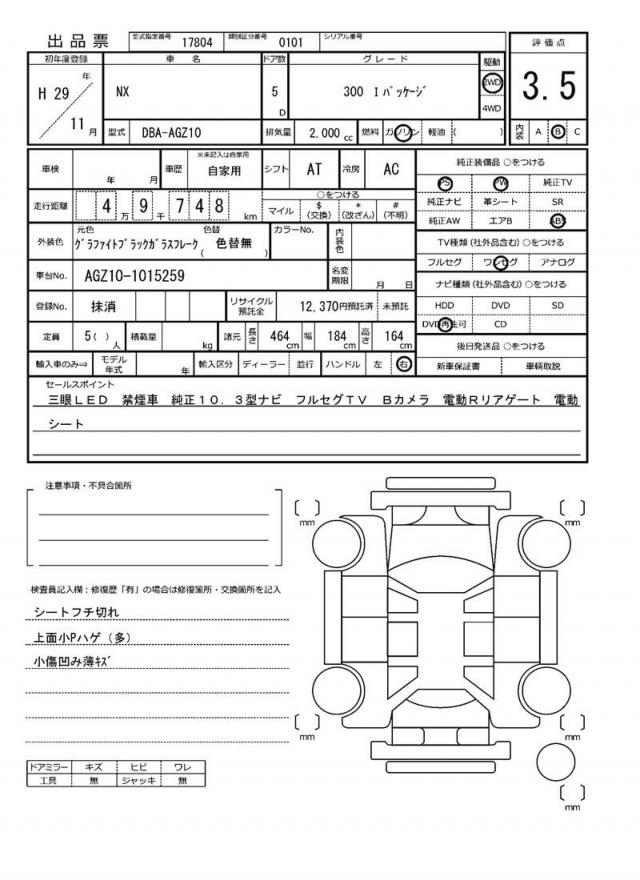 出品票 型式指定番号 17804 類別区分番号 0101 シリアル番号
評価点
3.5
内装 A B C
初年度登録 車名 ドア数 グレード 駆動
H 29 年 11 月 NX 5 D 300 Iパッケージ 2WD 4WD
型式 DBA-AGZ10 排気量 2,000 cc 燃料 ガソリン 軽油 ( )
車検 年 月 車歴 ※未記入は自家用 自家用 シフト AT 冷房 AC
走行距離 4 万 9 千 7 4 8 km
○をつける
マイル $ (交換) * (改ざん) # (不明)
外装色 元色 色替
グラファイトブラックガラスフレーク ( 色替無 ) カラーNo. 内装色
車台No. AGZ10-1015259 名変期限 月 日
登録No. 抹消 リサイクル預託金 12,370円預託済 未預託
定員 5( ) 人 積載量 kg 諸元 長さ 464 cm 幅 184 cm 高さ 164 cm
輸入車のみ⇒ モデル年式 年 輸入区分 ディーラー 並行 ハンドル 左 右
純正装備品 ○をつける
PS PW 純正TV
純正ナビ 革シート SR
純正AW エアB ABS
TV種類(社外品含む) ○をつける
フルセグ ワンセグ アナログ
ナビ種類(社外品含む) ○をつける
HDD DVD SD
DVD再生可 CD
後日発送品 ○をつける
新車保証書 車輌取説
セールスポイント
三眼LED 禁煙車 純正10.3型ナビ フルセグTV Bカメラ 電動Rリアゲート 電動
シート
注意事項・不具合箇所
検査員記入欄:修復歴「有」の場合は修復箇所・交換箇所を記入
シートフチ切れ
上面小Pハゲ(多)
小傷凹み薄キズ
ドアミラー キズ ヒビ ワレ
工具 無 ジャッキ 無
[ ] mm
[ ] mm
[ ] mm
[ ] mm
[ ] mm